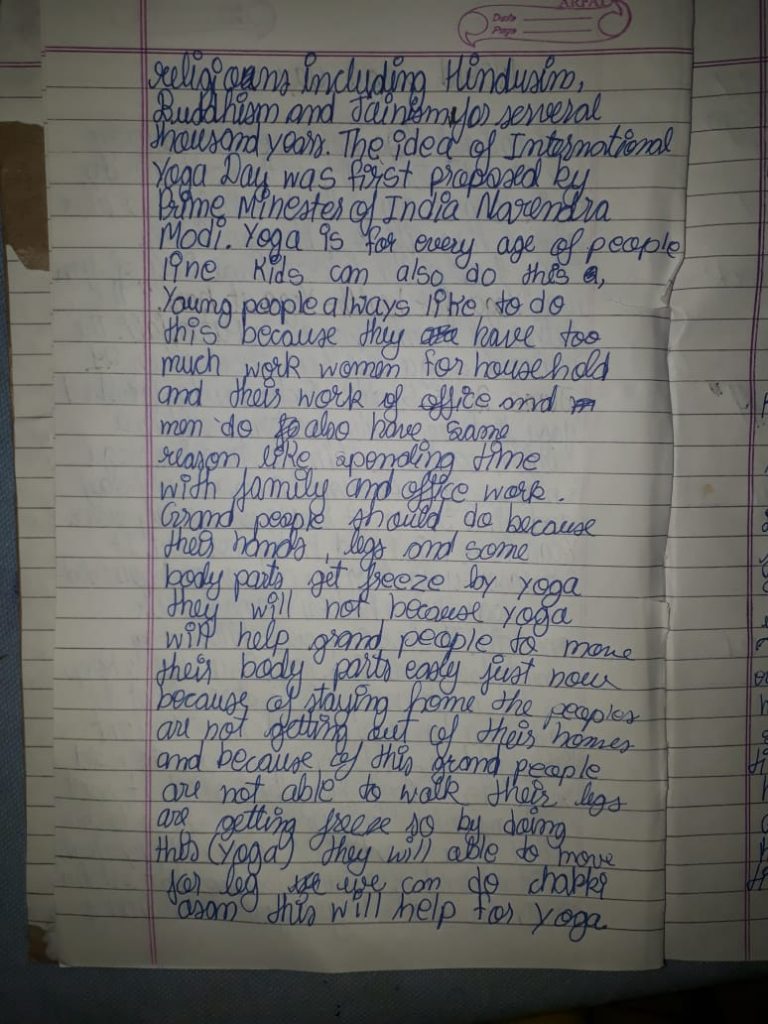 ARPAL
Date
Page
religioans including Hindusim,
Buddhism and Jainism for serveral
thousand years. The idea of International
Yoga Day was first proposed by
Prime Minester of India Narendra
Modi. Yoga is for every age of people
line Kids can also do this,
Young people always like to do
this because they have too
much work women for household
and their work of office and
men do also have same
reason like spending time
with family and office work.
Grand people should do because
their hands, legs and some
body parts get freeze by yoga
they will not because yoga
will help grand people to move
their body parts easly just now
because of staying home the peoples
are not getting out of their homes
and because of this grand people
are not able to walk their legs
are getting freeze so by doing
this (yoga) they will able to move
for leg we can do chakki
asan this will help for yoga.